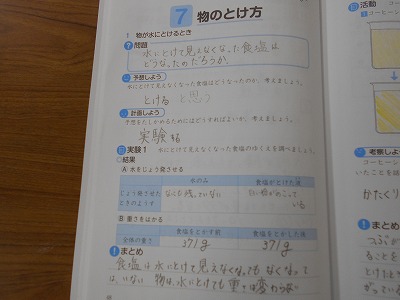 7 物のとけ方
1 物が水にとけるとき
問題
水にとけて見えなくなった食塩は
どうなったのだろうか。
予想しよう
水にとけて見えなくなった食塩はどうなったのか、考えましょう。
とける と思う
計画しよう
予想をたしかめるためにはどうすればよいか、考えましょう。
実験する
実験1 水にとけて見えなくなった食塩のゆくえを調べましょう。
○結果
A 水をじょう発させる
水のみ 食塩がとけた液
じょう発させた
ときのようす
なにも残っていない
いる
B 重さをはかる
食塩をとかす前 食塩をとかした後
全体の重さ 371g 371g
まとめ
食塩は水にとけて見えなくなってもなくなって
はいない 物は、水にとけても重さは変わらない
活動
コーヒーシ
コーヒーシ
考察しよ
コーヒーシ
いたことを
かたくり
まとめ